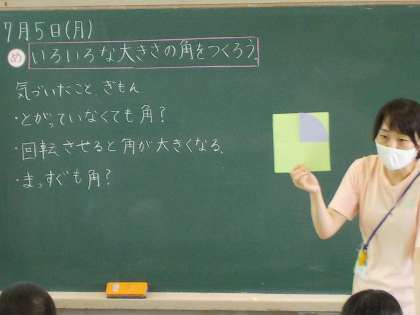 7月5日(月)
め いろいろな大きさの角をつくろう。
気づいたこと、ぎもん
・とがっていなくても角?
・回転させると角が大きくなる。
・まっすぐも角?